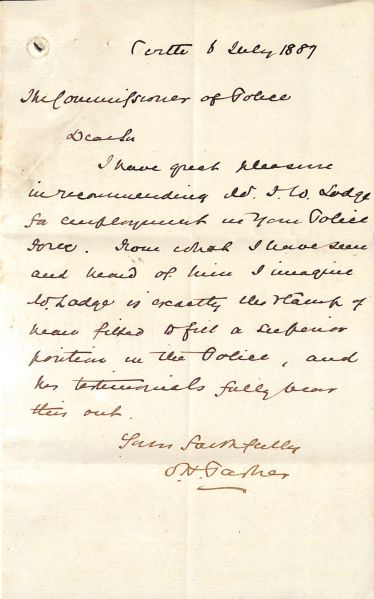 Perth 6 July 1887
The Commissioner of Police
Dear Sir
I have great pleasure
in recommending Mr. F. W. Lodge
for employment in your Police
Force. From what I have seen
and heard of him I imagine
Mr. Lodge is exactly the stamp of
man fitted to fill a superior
position in the Police, and
his testimonials fully bear
this out.
Yours faithfully